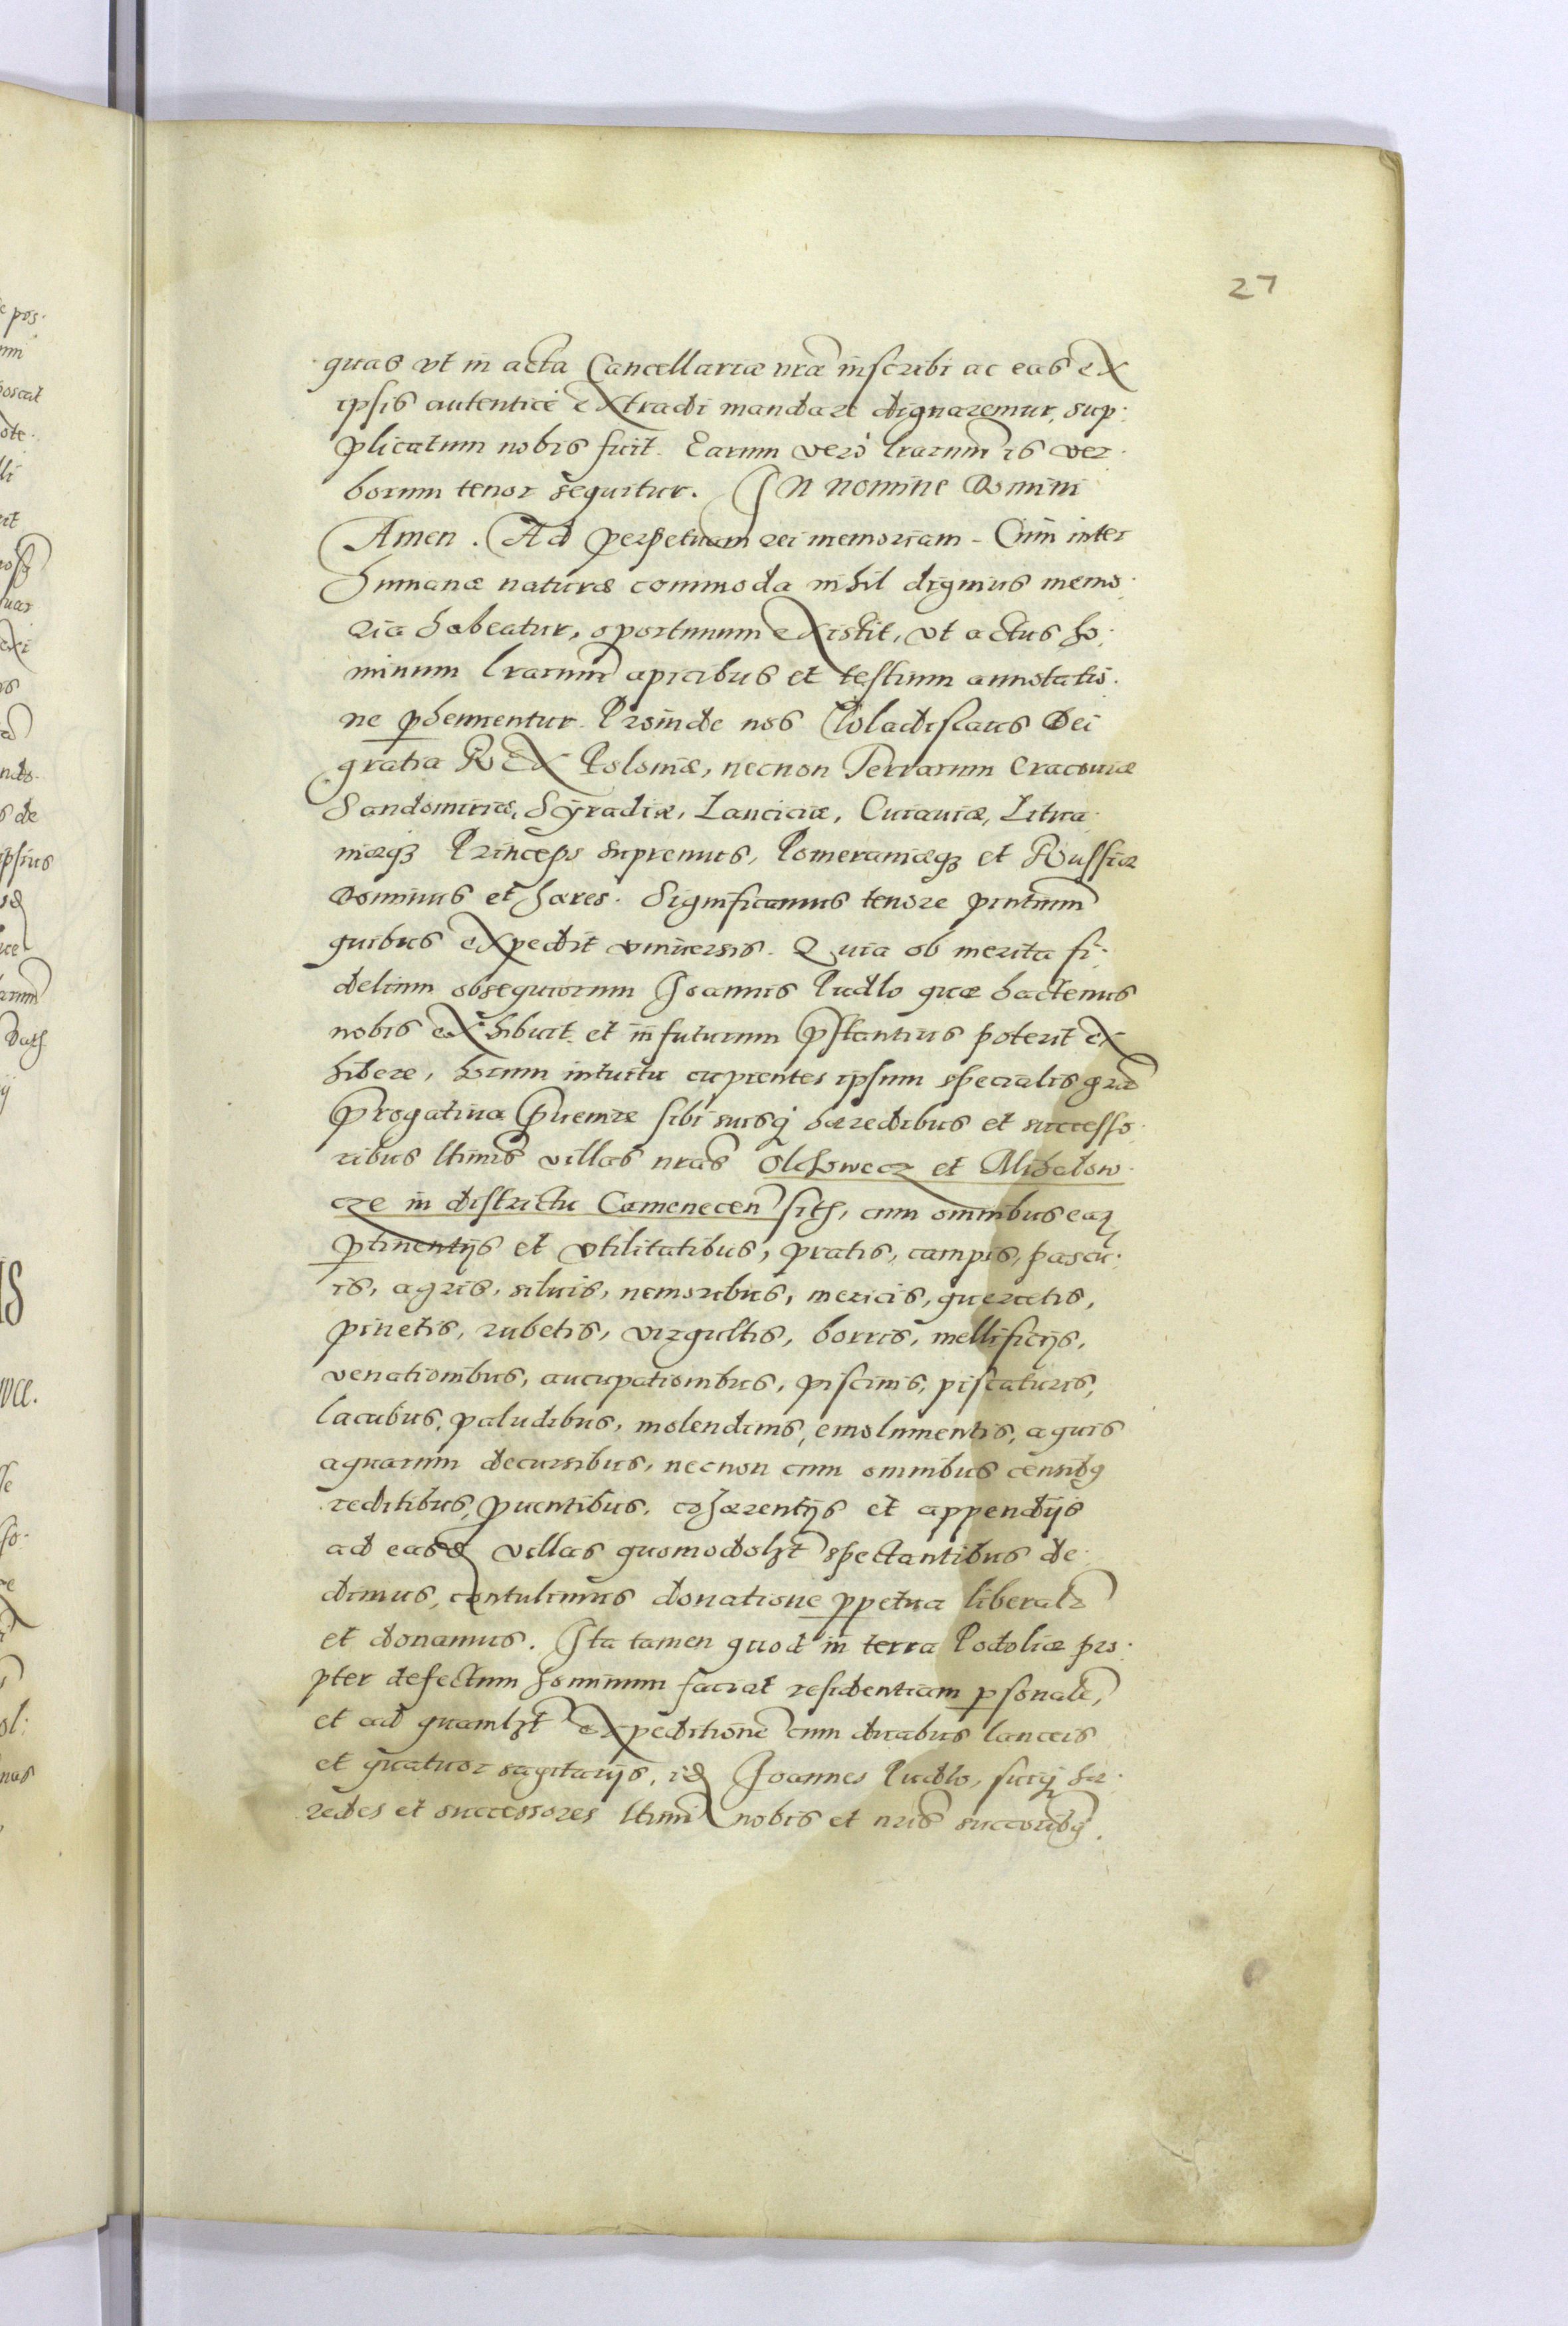 27
quas vt in acta Cancellariæ nræ inscribi ac eas ex
ipsis autentice extradi mandare dignaremur, sup:
plicatum nobis fuit. Earum verò lrarum is ver:
borum tenor sequitur. In nomine Domini
Amen. Ad perpetuam rei memoriam. Cum inter
humanæ naturæ commoda nihil dignius memo:
ria habeatur, oportunum existit, vt actus ho:
minum lrarum apicibus et testium annotatio:
ne phennentur. Proinde nos Wladislaus Dei
gratia Rex Poloniæ, necnon Terrarum Cracouiæ
Sandomiriæ, Syradiæ, Lanciciæ, Cuiauiæ, Litua:
niæq3 Princeps supremus, Pomeraniæq3 et Russiæ
Dominus et hæres. Significamus tenore pntium
quibus expedit vniuersis. Quia ob merita fi:
delium obsequiorum Joannis Pudlo quæ hactenus
nobis exhibuit et in futurum pstantius poterit ex
hibere, horum intuitu cupientes ipsum specialis græ
progatiua puenire sibi suisq3 hæredibus et successo:
ribus ltimis villas nras Olchowecz et Michalow:
cze in districtu Camenecen sith, cum omnibus eaꝝ
ptinentijs et vtilitatibus, pratis, campis, pascu:
is, agris, siluis, nemoribus, mericis, quercetis,
pinetis, rubetis, virgultis, borris, mellificijs,
venationibus, aucupationibus, piscinis, piscaturis,
lacubus, paludibus, molendinis, emolumentis, aquis
aquarum decursibus, necnon cum omnibus censibq
reditibus, puentibus, cohærentijs et appendijs
ad easd villas quomodolzt spectantibus de:
dimus, contulimus donatione ppetua liberalr
et donamus. Ita tamen quod in terra Podoliæ pro:
pter defectum hominum faciat residentiam psonale,
et ad quamlzt expeditione cum duabus lanceis
et quatuor sagitarijs, id Joannes Pudlo, suiq3 hæ:
redes et successores ltimi nobis et nris succoribq.